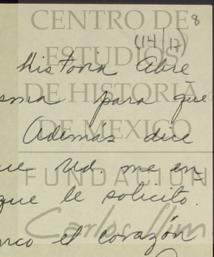 CENTRO DE 8
ESTUDIOS (14/17)
Historia Abre
DE HISTORIA
sma para que
DE MEXICO
Además dice
ue Ud. me en
FUNDACIÓN
que le solicito.
Carlos Slim
nco el corazón